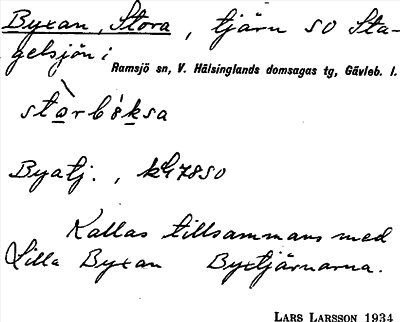 Byxan, Stora, tjärn SO Sta-
gelsjön i
Ramsjö sn, V. Hälsinglands domsagas tg, Gävleb. l.
Byatj., k 47850
Kallas tillsammans med
Lilla Byxan Byxtjärnarna.
LARS LARSSON 1934